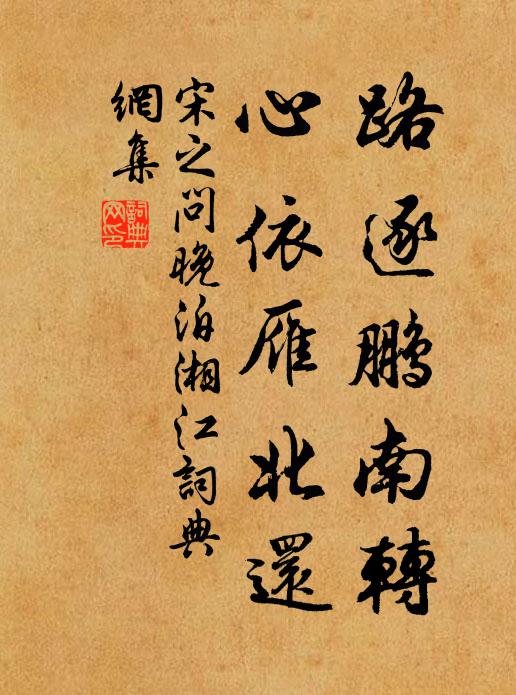 路逐鵬南轉
心依雁北還
宋之問晚泊湘江詞典
網集
詞典
网印